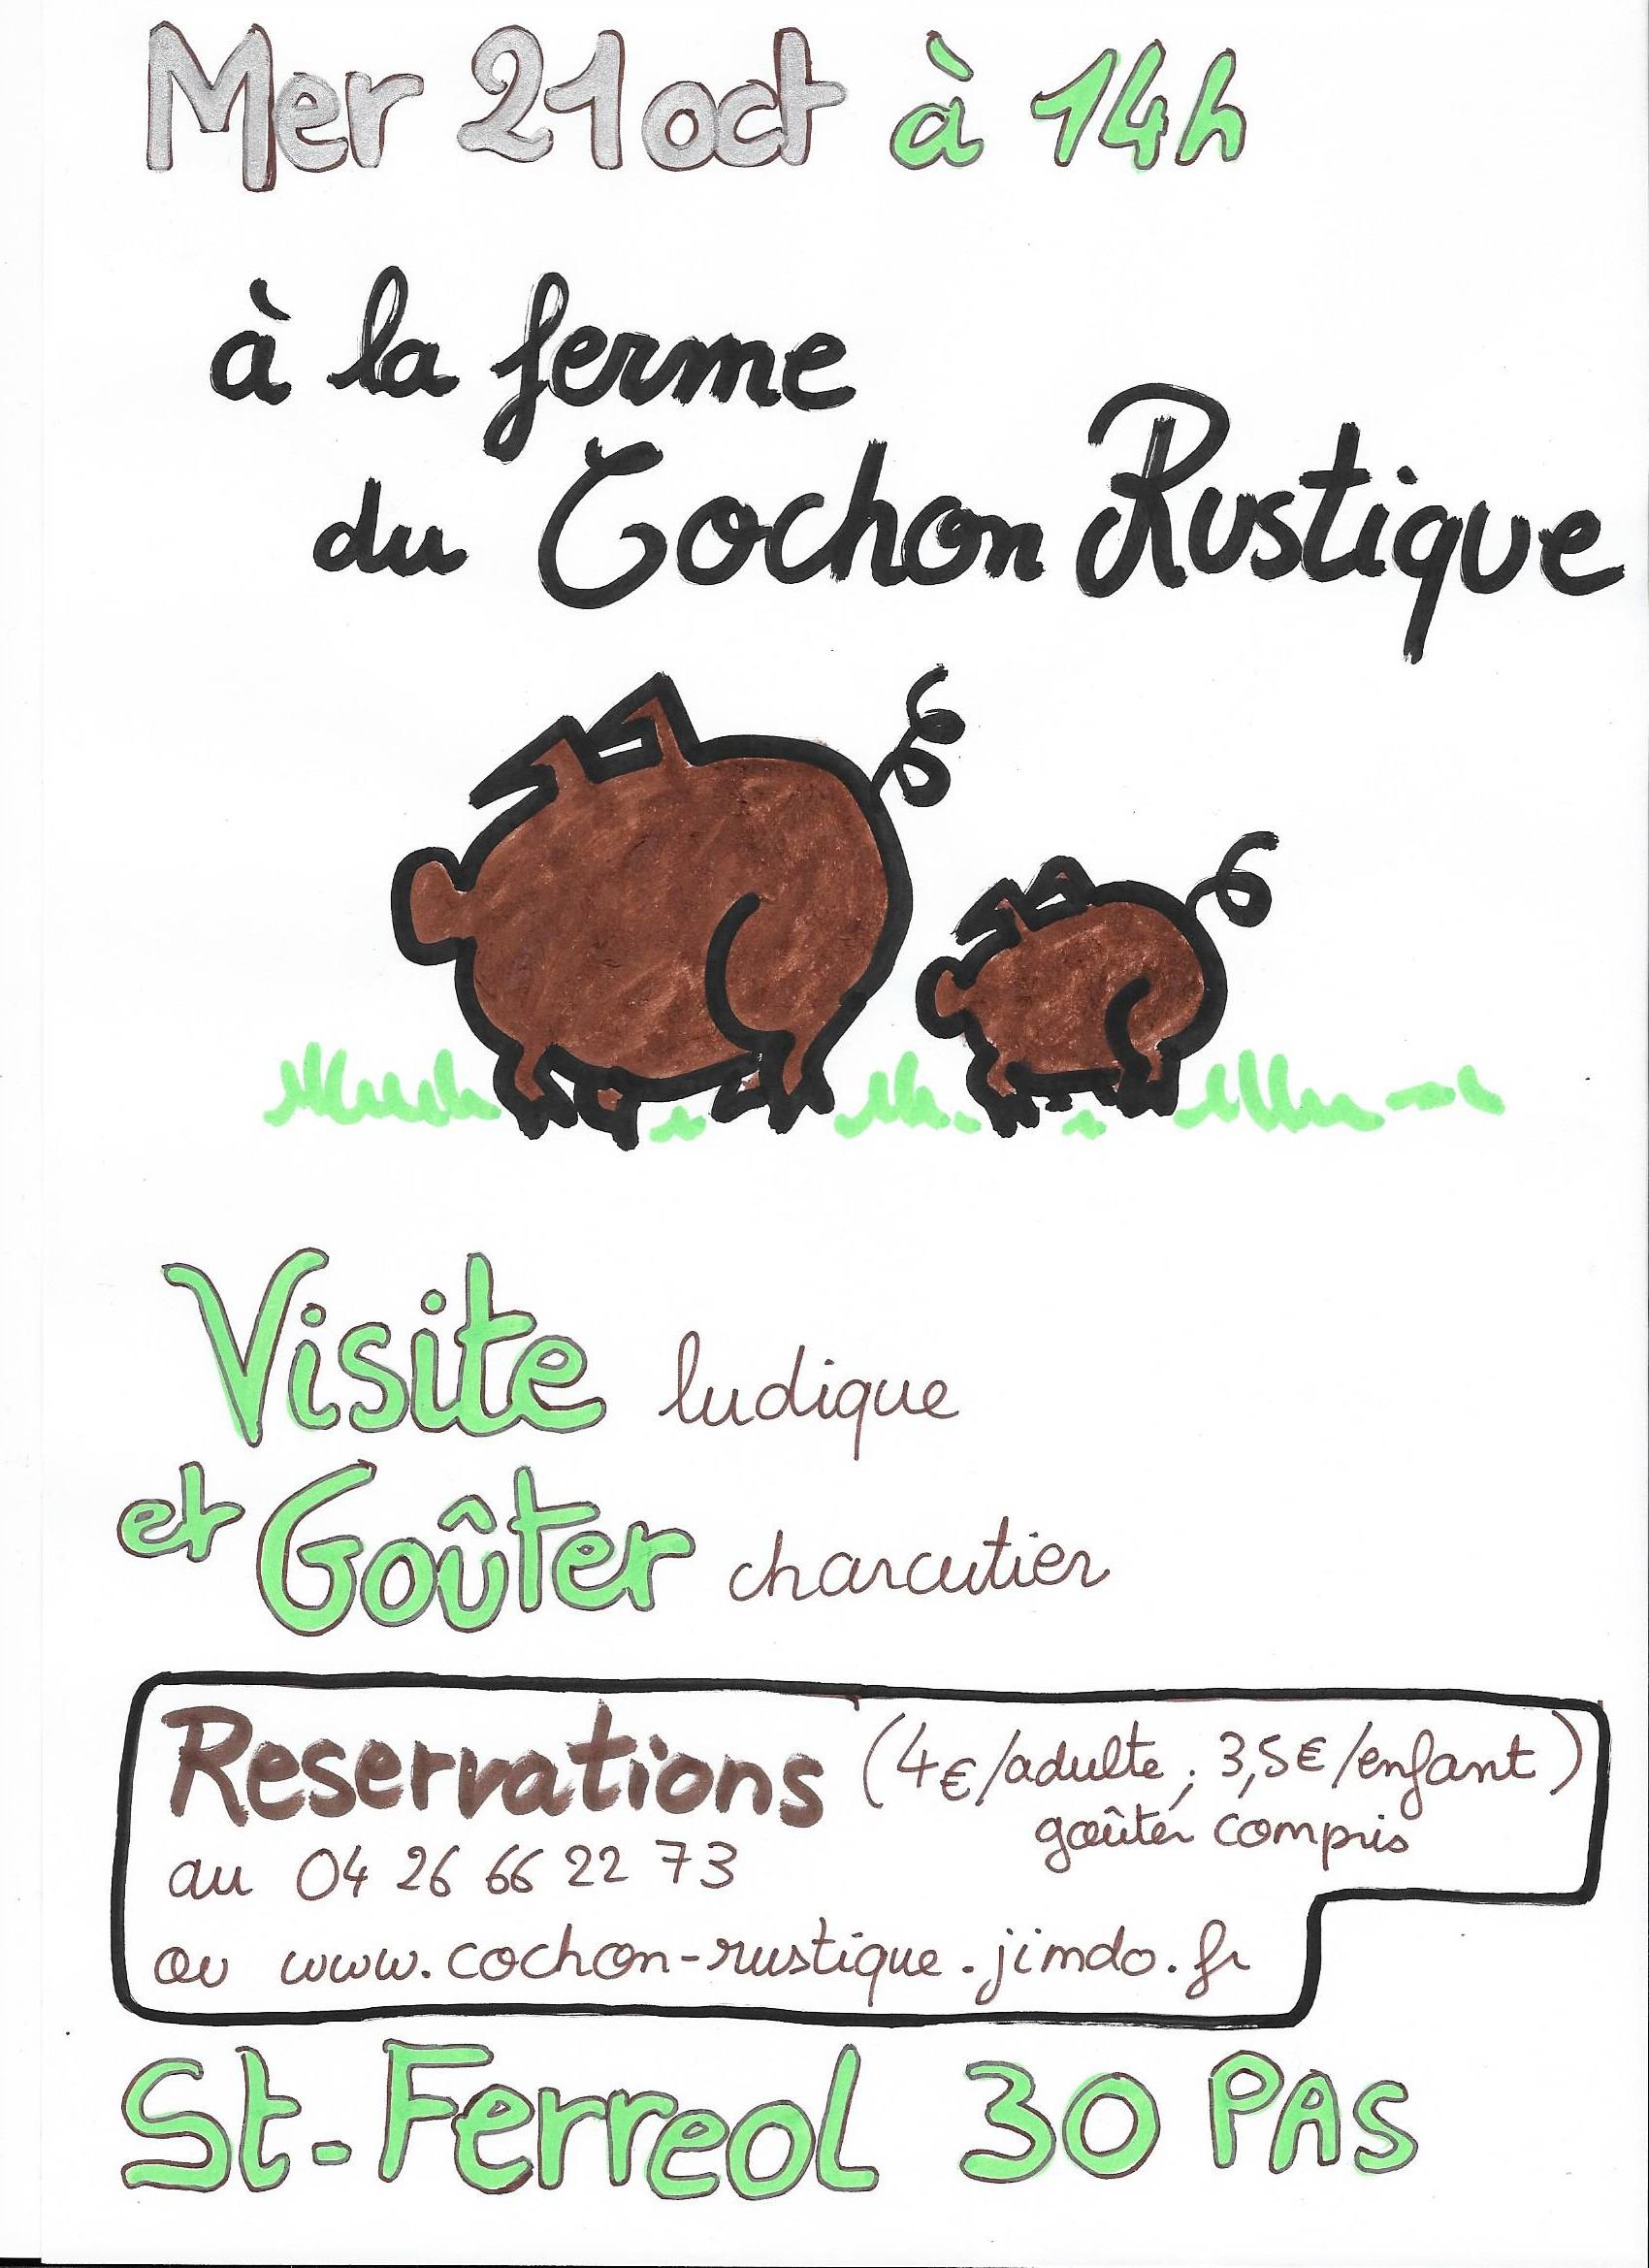 Mer 21 oct à 14h
à la ferme
du Cochon Rustique
Visite ludique
et Goûter charcutier
Reservations (4€/adulte, 3,5€/enfant)
goûter compris
au 04 26 66 22 73
ou www.cochon-rustique.jimdo.fr
St-Ferreol 30 PAS